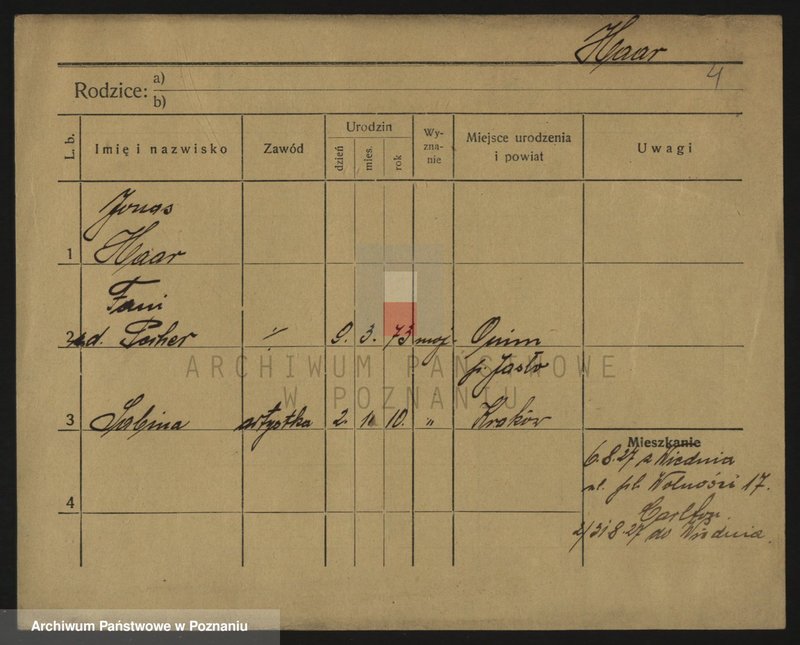 Haar
4
Rodzice: a)
b)
L. b.
Imię i nazwisko
Zawód
Urodzin
dzień
mies.
rok
Wy-
zna-
nie
Miejsce urodzenia
i powiat
Uwagi
Jonas
1 Haar
Fani
2 d. 9. 3. 73 moj.
p. Jasło
3 Sabina artystka 2. 10. " Kraków
Mieszkanie
6.8.27 z Wiednia
pl. Wolności 17.
4
31 8.27 do Wiednia.
ARCHIWUM PAŃSTWOWE
W POZNANIU
Archiwum Państwowe w Poznaniu